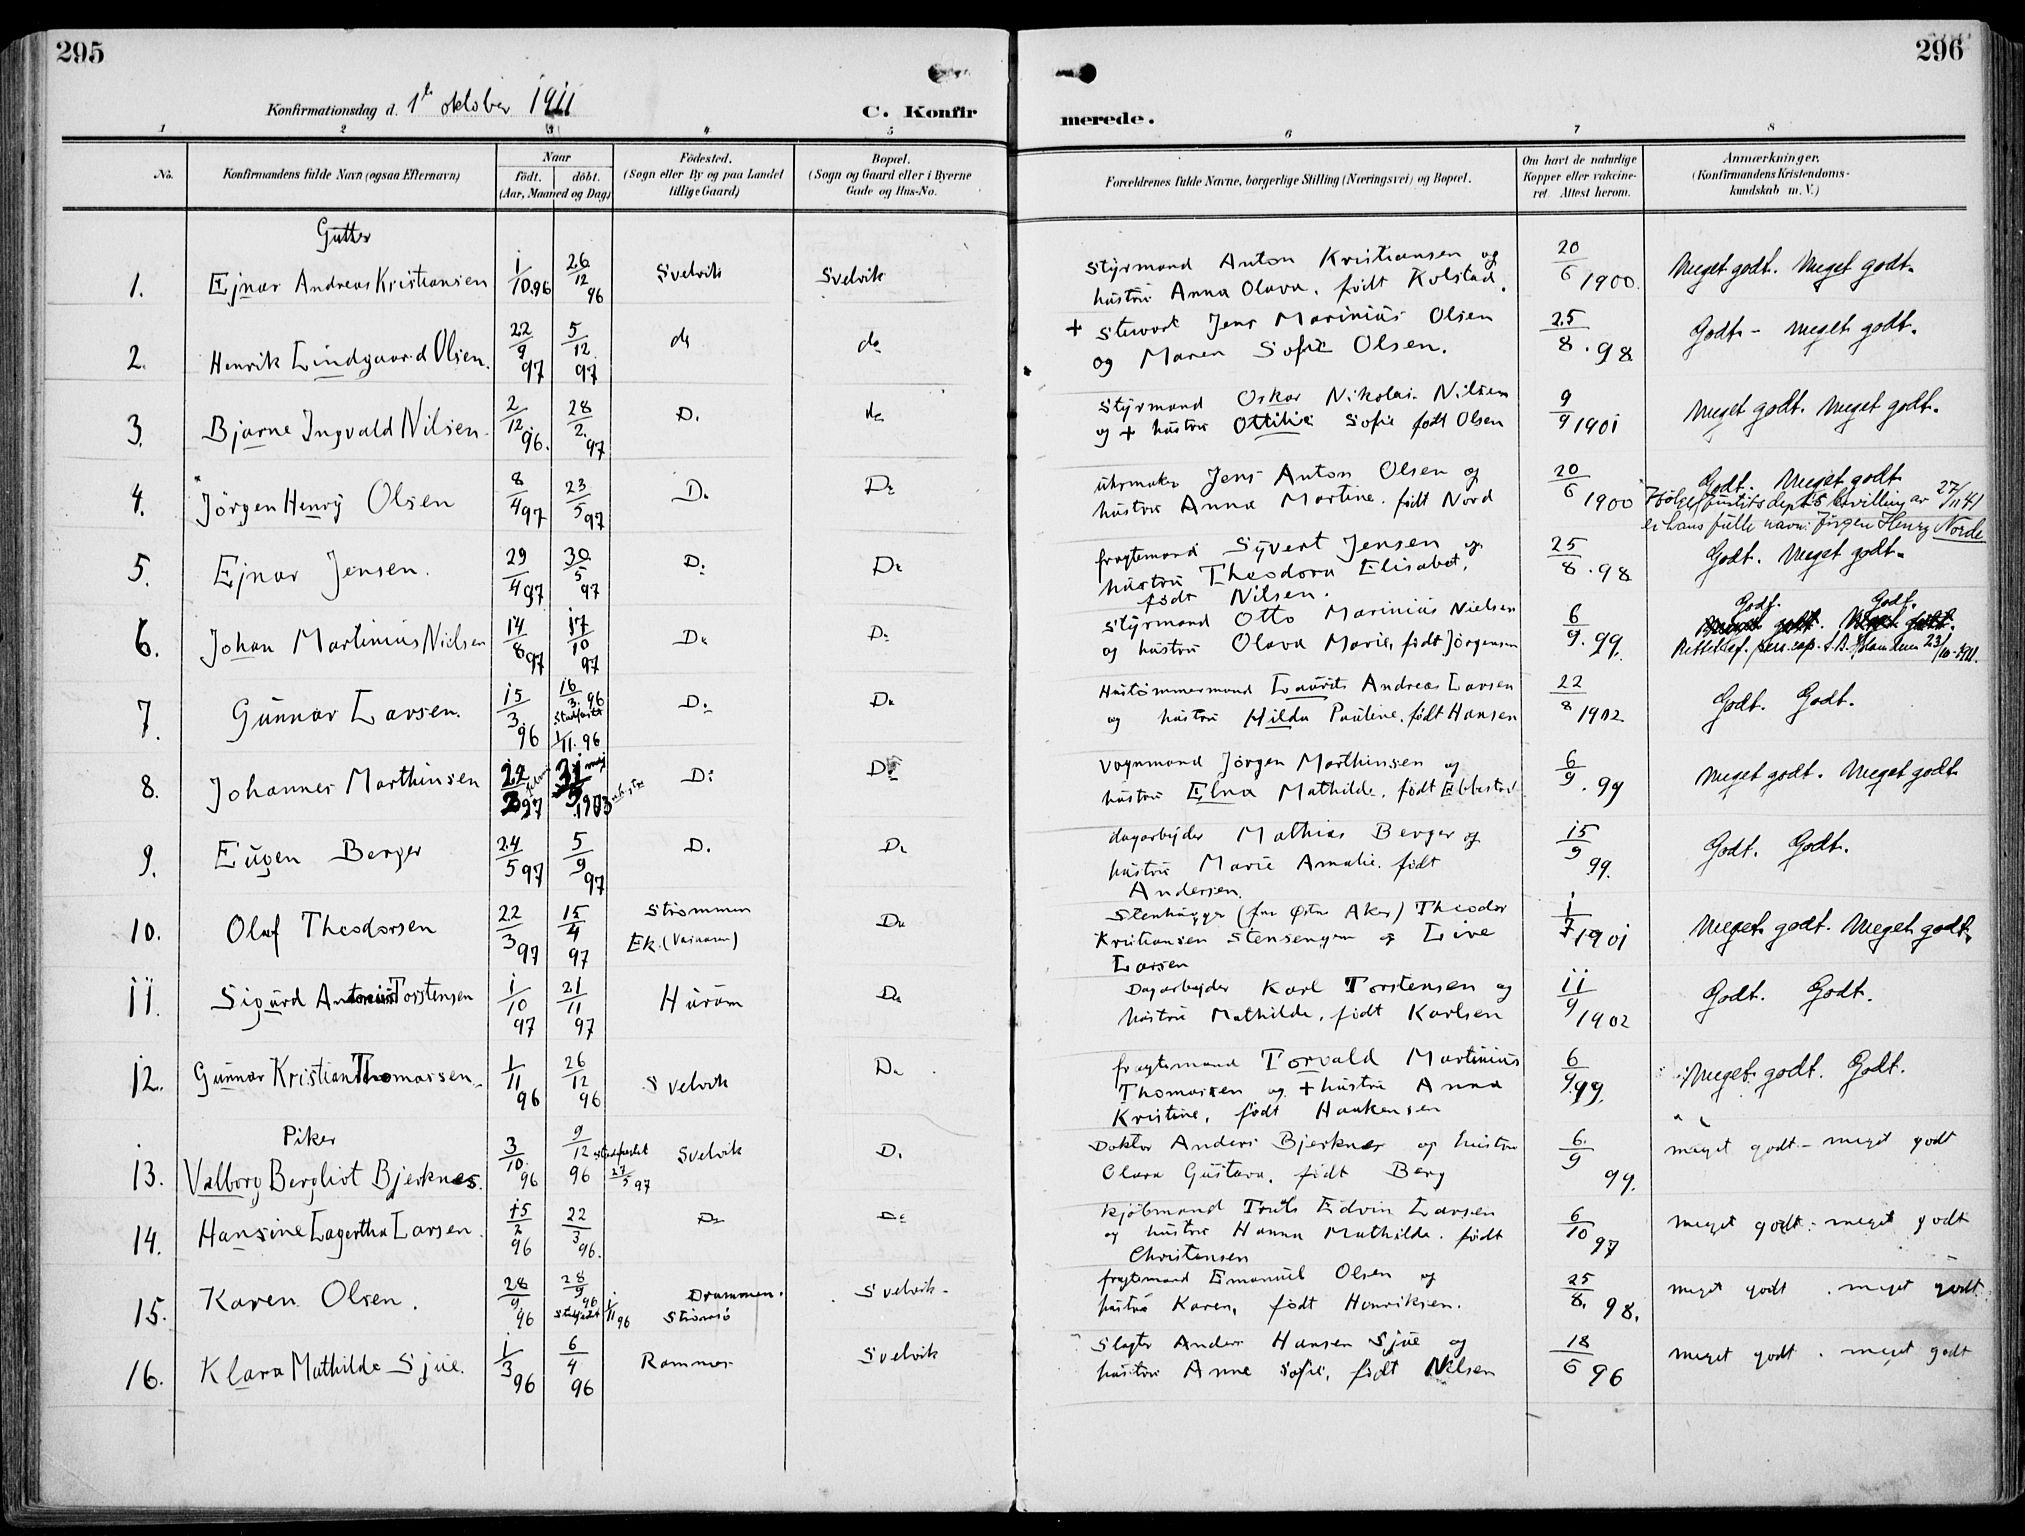 295
296
Konfirmationsdag d. 1te oktober 1911
C. Konfir
merede.
1 2 3 4 5 6 7 8
No.
Konfirmandens fulde Navn (ogsaa Efternavn)
Naar
födt. döbt.
(Aar, Maaned og Dag)
Födested.
(Sogn eller By og paa Landet
tillige Gaard)
Bopæl.
(Sogn og Gaard eller i Byerne
Gade og Hus-No.
Forældrenes fulde Navne, borgerlige Stilling (Næringsvei) og Bopæl.
Om havt de naturlige
Kopper eller vakcine-
ret. Attest herom.
Anmærkninger.
(Konfirmandens Kristendoms-
kundskab m. V.)
Gutter
1. Ejnar Andreas Kristiansen 1/10 96 26/12 96 Svelvik Svelvik
Styrmand Anton Kristiansen og
hustru Anna Olava, født Kolstad.
20/6 1900. Meget godt. Meget godt.
2. Henrik Lindgaard Olsen. 22/9 97 5/12 97 do do
+ Stuwart Jens Marinius Olsen
og Maren Sofie Olsen.
25/8 . 98 Godt - meget godt.
3. Bjarne Ingvald Nilsen 2/12 96. 28/2. 97 D. do
Styrmand Oskar Nikolai Nilsen
og + hustru Ottilie Sofie født Olsen
9/9 1901 Meget godt. Meget godt.
4. Jörgen Henry Olsen 8/4 97 23/5 97 Do Do
uhrmaker Jens Anton Olsen og
hustru Anna Martine, født Nord
20/6 1900 Godt. Meget godt
Ifölge justitsdept's bevilling av 27/11 41
er hans fulle navn: Jörgen Henry Norde
5. Ejnar Jensen. 29/4 97 30/5 97 Do Do
fragtemand Syvert Jensen og
hustru Theodora Elisabet,
født Nilsen.
25/8 . 98 Godt. Meget godt.
6. Johan Martinius Nielsen 14/8 97 17/10 97 Do Do
Styrmand Otto Marinius Nielsen
og hustru Olava Marie, født Jörgensen
6/9. 99. Godt. Godt.
23/10-1911.
7. Gunnar Larsen. 15/3 96 16/3. 96
Stadfæstet
1/11. 96 Do Do
Hustömmermand Laurits Andreas Larsen
og hustru Hilda Pauline, født Hansen
22/8 1902 Godt. Godt.
8. Johannes Marthinsen Do Do
Vognmand Jörgen Marthinsen og
hustru Elna Mathilde, født Ebbestad
6/9. 99 Meget godt. Meget godt
9. Eugen Berger 24/5 97 5/9 97 D. Do
dagarbejder Mathias Berger og
hustru Marie Amalie, født
Andersen.
15/9 99. Godt. Godt.
10. Olaf Theodorsen 22/3 97 15/4 97 Strömmen
Ek. Do
Stenhugger (fra Østre Aker) Theodor
Kristiansen Stensengen og Live
Larsen
1/7 1901 Meget godt. Meget godt.
11. Sigurd Antonius Torstensen 1/10 97 21/11 97 Hurum Do
Dagarbejder Karl Torstensen og
hustru Mathilde, født Karlsen
11/9 1902 Godt. Godt.
12. Gunnar Kristian Thomassen 1/11 96 26/12 96 Svelvik Do
fragtemand Torvald Martinius
Thomassen og + hustru Anna
Kristine, født Haakensen
6/9 99. Meget godt. Godt.
Piker
13. Valborg Bergliot Bjerknes. 3/10 96 9/12 96 stadfæstet 27/5 97 Svelvik D.
Doktor Anders Bjerknes og hustru
Olava Gustava, født Berg
6/9 99. meget godt - meget godt
14. Hansine Lagertha Larsen. 15/2 96 22/3 96. Do Do
kjöbmand Truls Edvin Larsen
og hustru Hanna Mathilde, født
Christensen
6/10 97 meget godt - meget godt
15. Karen Olsen. 28/9 96 28/9 96 Stadfæstet 1/11 96 Drammen.
Strömsö Svelvik.
fragtemand Emanuel Olsen og
hustru Karen, født Henriksen.
25/8. 98. meget godt . meget godt.
16. Klara Mathilde Sjue. 1/3 96 6/4 96 Ramnes Svelvik
Slagter Anders Hansen Sjue og
hustru Anne Sofie, født Nilsen
18/6 96 meget godt . meget godt